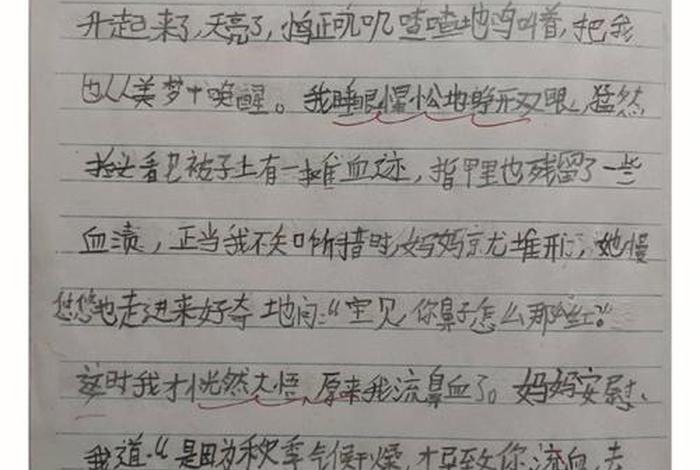 升起来了，天亮了，鸟正叽叽喳喳地鸣叫着，把我
也从美梦中唤醒。我睡眼惺忪地睁开双眼，猛然
抬头看见被子上有一摊血迹，指甲里也残留了一些
血渍，正当我不知所措时，妈妈京尤推开，她慢
悠悠地走进来好夸地问：“宝贝，你鼻子怎么那么红。”
这时我才恍然大悟，原来我流鼻血了。妈妈安慰、
我道：“是因为秋季气候干燥，才导致你流血，去